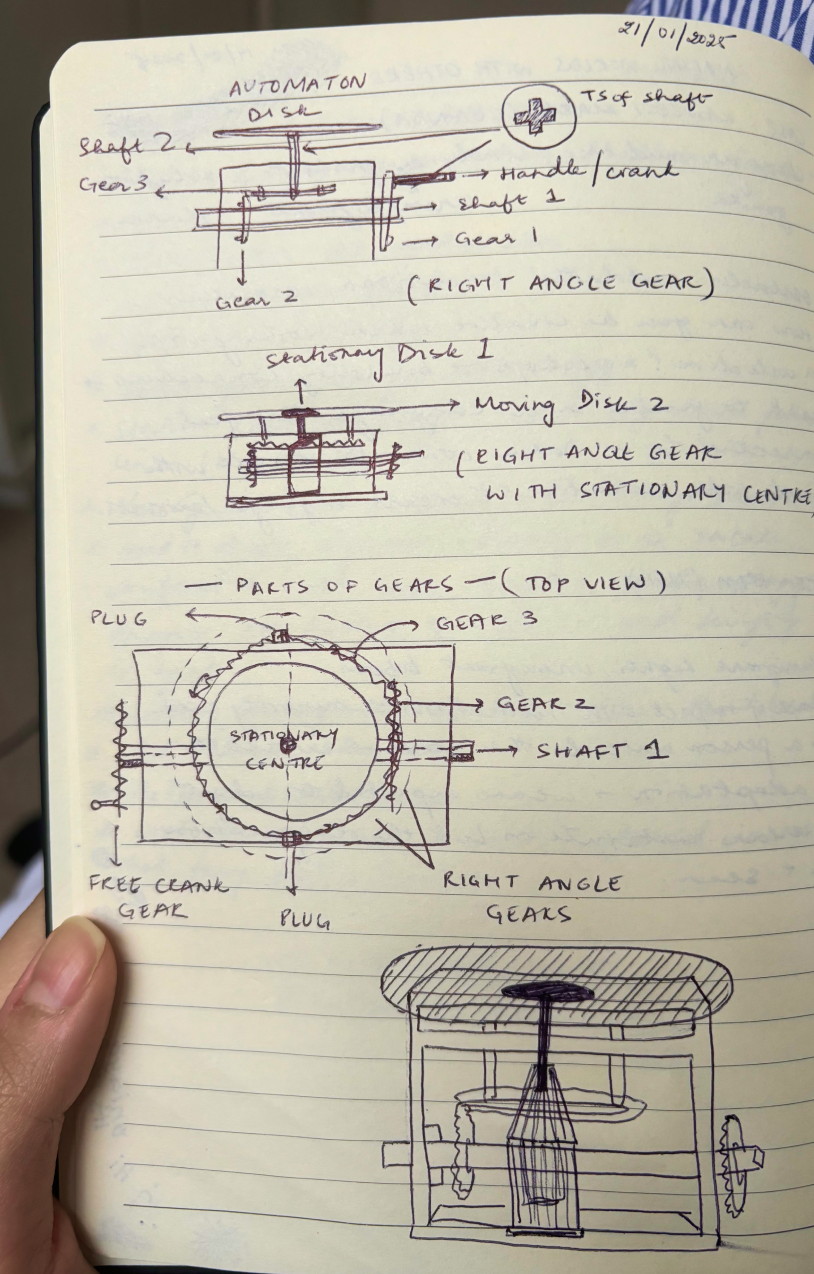 21/01/2025
AUTOMATON
DISK
TS of shaft
Shaft 2
Gear 3
Handle/crank
Shaft 1
Gear 1
Gear 2
(RIGHT ANGLE GEAR)
Stationary Disk 1
Moving Disk 2
(RIGHT ANGLE GEAR
WITH STATIONARY CENTRE
— PARTS OF GEARS — (TOP VIEW)
PLUG
GEAR 3
GEAR 2
STATIONARY
CENTRE
SHAFT 1
FREE CRANK
GEAR
RIGHT ANGLE
GEARS
PLUG